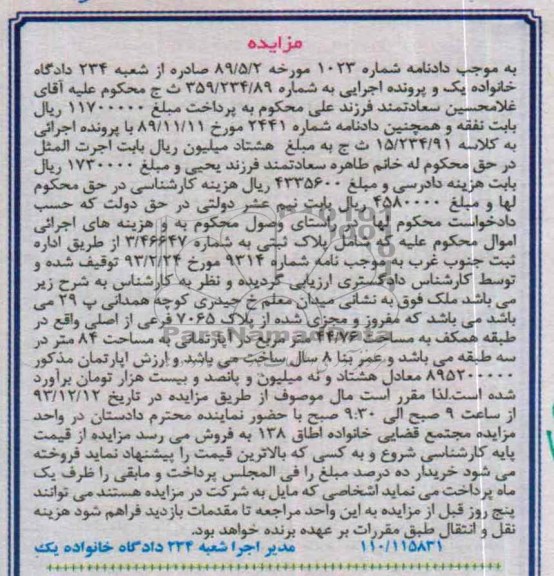 مزایده
به موجب دادنامه شماره ۱۰۲۳ مورخه ۸۹/۵/۲ صادره از شعبه ۲۳۴ دادگاه
خانواده یک و پرونده اجرایی به شماره ۳۵۹/۲۳۴/۸۹ ث ج محکوم علیه آقای
غلامحسین سعادتمند فرزند علی محکوم به پرداخت مبلغ ۱۱۷۰۰۰۰۰ ریال
بابت نفقه و همچنین دادنامه شماره ۲۴۴۱ مورخ ۸۹/۱۱/۱۱ با پرونده اجرائی
به کلاسه ۱۵/۲۳۴/۹۱ ث ج به مبلغ هشتاد میلیون ریال بابت اجرت المثل
در حق محکوم له خانم طاهره سعادتمند فرزند یحیی و مبلغ ۱۷۳۰۰۰۰ ریال
بابت هزینه دادرسی و مبلغ ۴۳۳۵۶۰۰ ریال هزینه کارشناسی در حق محکوم
لها و مبلغ ۴۵۸۰۰۰۰ ریال بابت نیم عشر دولتی در حق دولت که حسب
دادخواست محکوم لها در راستای وصول محکوم به و هزینه های اجرائی
اموال محکوم علیه که شامل پلاک ثبتی به شماره ۳/۴۶۶۴۷ از طریق اداره
ثبت جنوب غرب به موجب نامه شماره ۹۳۱۴ مورخ ۹۳/۲/۲۴ توقیف شده و
توسط کارشناس دادگستری ارزیابی گردیده و نظر به کارشناس به شرح زیر
می باشد ملک فوق به نشانی میدان معلم خ حیدری کوچه همدانی پ ۲۹ می
باشد می باشد که مفروز و مجزی شده از پلاک ۷۰۶۵ فرعی از اصلی واقع در
طبقه همکف به مساحت ۴۴/۷۶ متر مربع در آپارتمانی به مساحت ۸۴ متر در
سه طبقه می باشد و عمر بنا ۸ سال ساخت می باشد و ارزش اپارتمان مذکور
۸۹۵۲۰۰۰۰۰ معادل هشتاد و نه میلیون و پانصد و بیست هزار تومان برآورد
شده است.لذا مقرر است مال موصوف از طریق مزایده در تاریخ ۹۳/۱۲/۱۲
از ساعت ۹ صبح الی ۹:۳۰ صبح با حضور نماینده محترم دادستان در واحد
مزایده مجتمع قضایی خانواده اطاق ۱۳۸ به فروش می رسد مزایده از قیمت
پایه کارشناسی شروع و به کسی که بالاترین قیمت را پیشنهاد نماید فروخته
می شود خریدار ده درصد مبلغ را فی المجلس پرداخت و مابقی را ظرف یک
ماه پرداخت می نماید اشخاصی که مایل به شرکت در مزایده هستند می توانند
پنج روز قبل از مزایده به این واحد مراجعه تا مقدمات بازدید فراهم شود هزینه
نقل و انتقال طبق مقررات بر عهده برنده خواهد بود.
۱۱۰/۱۱۵۸۳۱ مدیر اجرا شعبه ۲۳۴ دادگاه خانواده یک
ParsNamadData